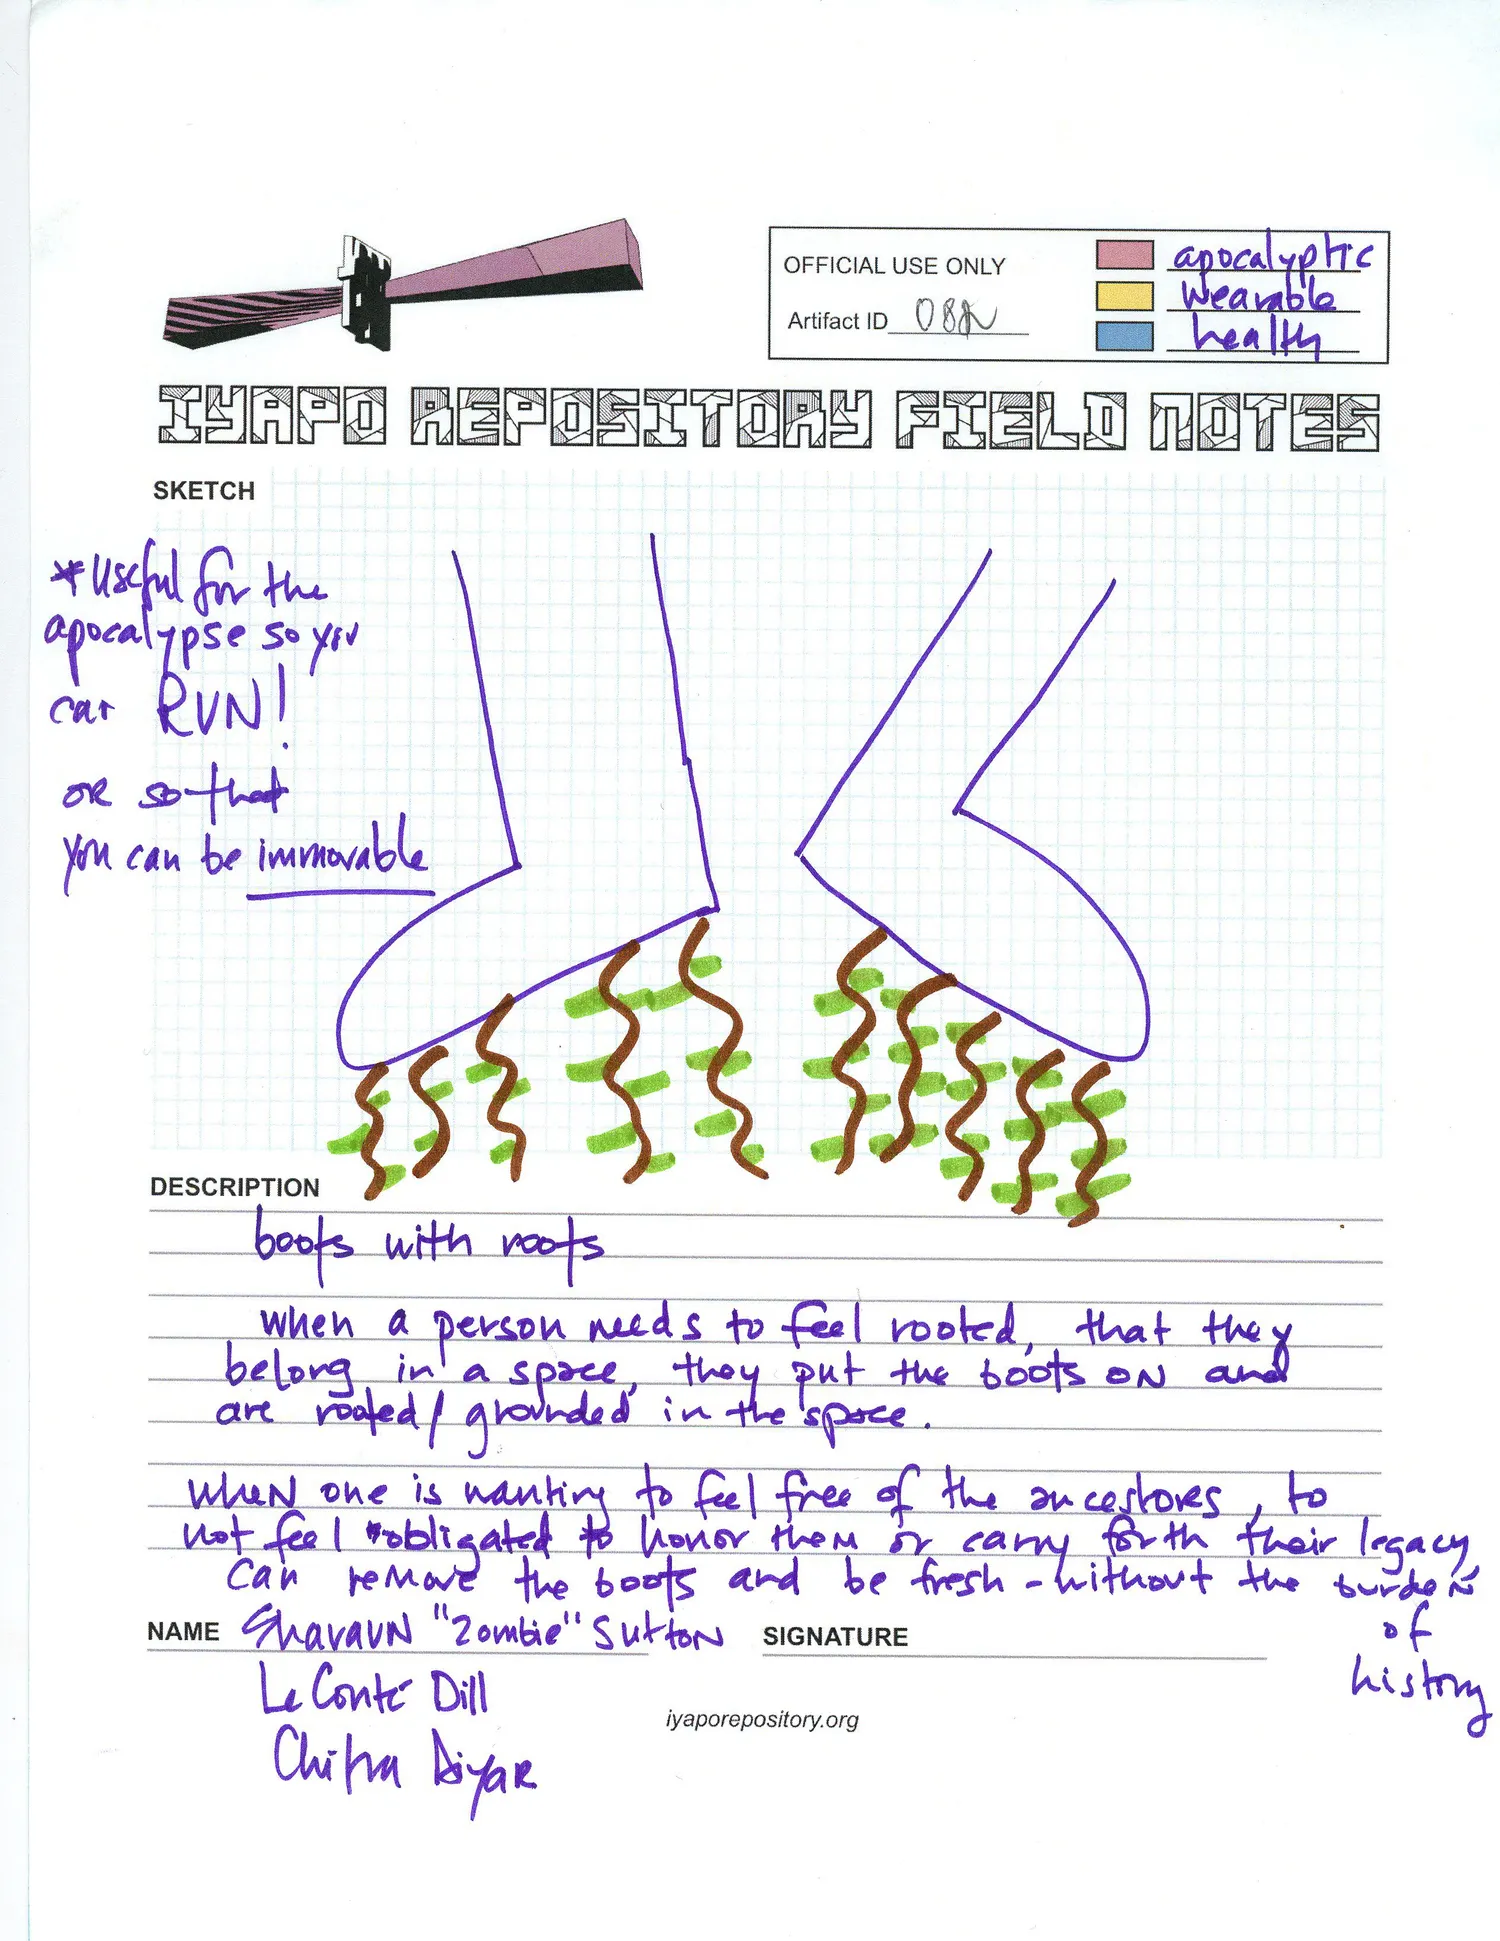 OFFICIAL USE ONLY
Artifact ID
apocalyptic
wearable
health
IYAPO REPOSITORY FIELD NOTES
SKETCH
*Useful for the
apocalypse so you
can RUN!
OR so that
you can be immovable
DESCRIPTION
boots with roots
when a person needs to feel rooted, that they
belong in a space, they put the boots on and
are rooted/grounded in the space.
when one is wanting to feel free of the ancestors, to
not feel obligated to honor them or carry forth their legacy,
can remove the boots and be fresh - without the burden
of
history
NAME Sharaun "Zombie" Sutton SIGNATURE
LeConté Dill
iyaporepository.org
Chitra Aiyar